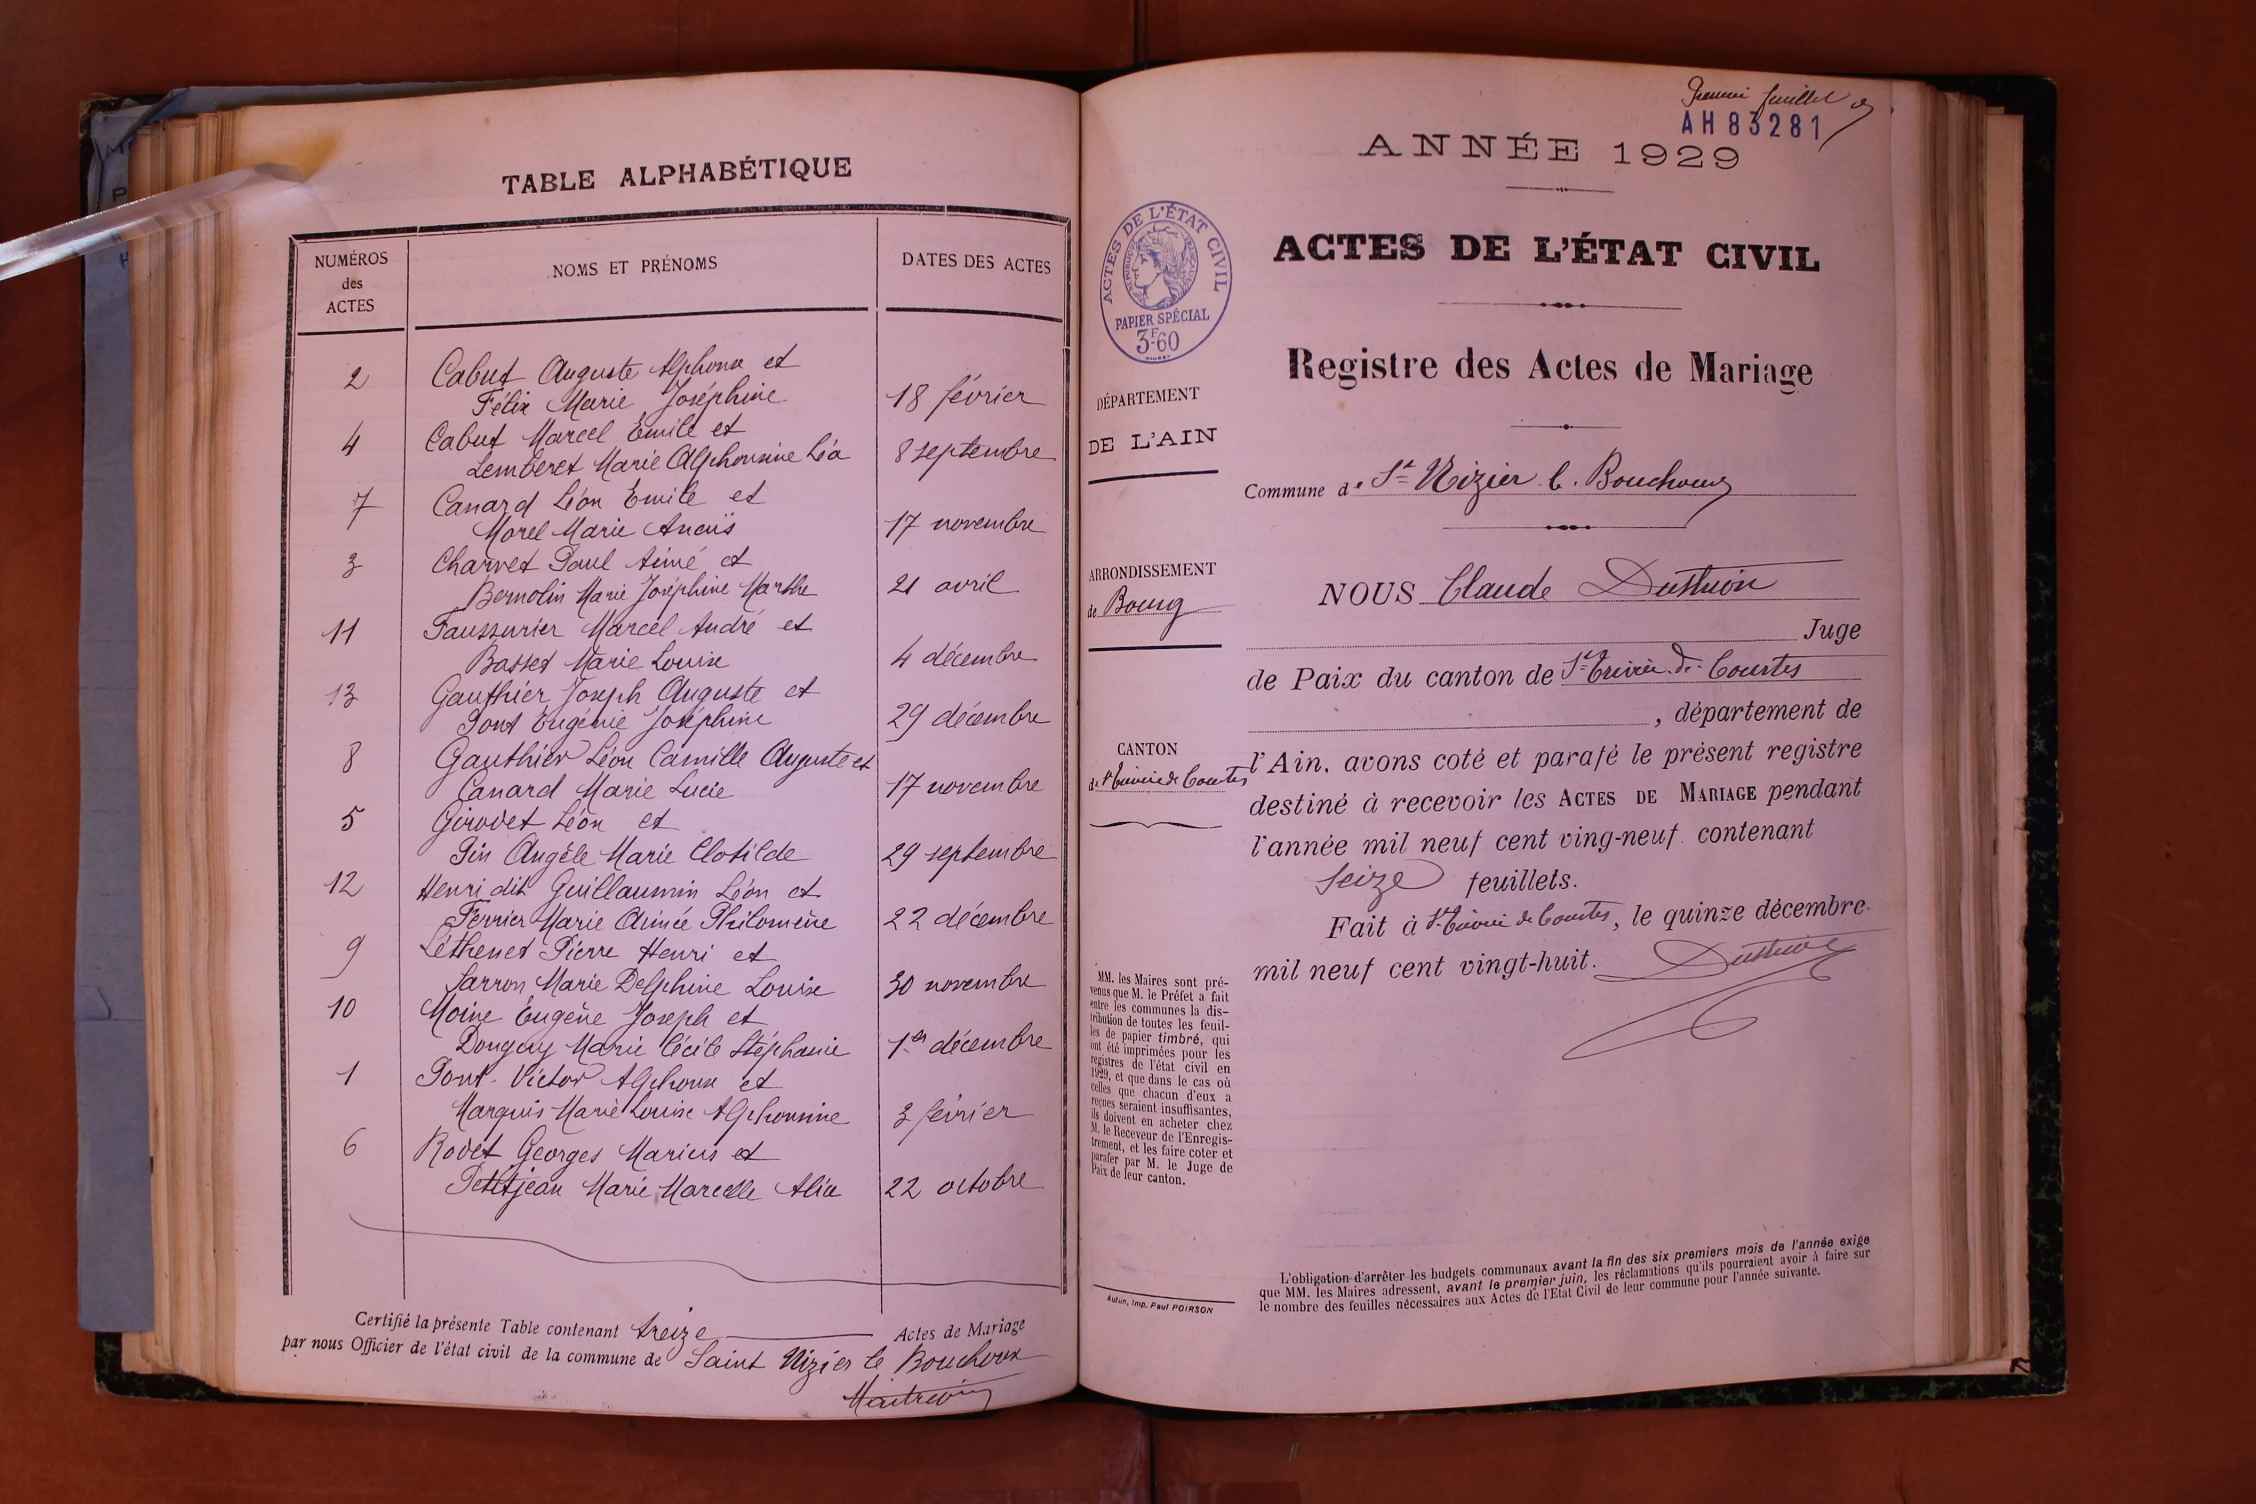 TABLE ALPHABÉTIQUE
NUMÉROS
des
ACTES
NOMS ET PRÉNOMS
DATES DES ACTES
2 Cabut Auguste Alphonse et
Félix Marie Joséphine 18 février
4 Cabut Marcel Emile et
Lemberet Marie Alphonsine Léa 8 septembre
7 Canard Léon Emile et
Morel Marie Anaïs 17 novembre
3 Charvet Paul Aimé et
Bernolin Marie Joséphine Marthe 21 avril
11 Faussurier Marcel André et
Basset Marie Louise 4 décembre
13 Gauthier Joseph Auguste et
Pont Eugénie Joséphine 29 décembre
8 Gauthier Léon Camille Auguste et
Canard Marie Lucie 17 novembre
5 Girodet Léon et
Pin Angèle Marie Clotilde 29 septembre
12 Henri dit Guillaumin Léon et
Ferrier Marie Aimée Philomène 22 décembre
9 Léthenet Pierre Henri et
Sarron Marie Delphine Louise 30 novembre
10 Moine Eugène Joseph et
Donguy Marie Cécile Stéphanie 1er décembre
1 Pont Victor Alphonse et
Marquis Marie Louise Alphonsine 3 février
6 Rodet Georges Marius et
Petitjean Marie Marcelle Alice 22 octobre
Certifié la présente Table contenant treize Actes de Mariage
par nous Officier de l'état civil de la commune de Saint Nizier le Bouchoux
Premier feuillet
AH83281
ANNÉE 1929
ACTES DE L'ÉTAT CIVIL
PAPIER SPÉCIAL
3F60
ACTES DE L'ÉTAT CIVIL
Registre des Actes de Mariage
DÉPARTEMENT
DE L'AIN
Commune de St Nizier le Bouchoux
ARRONDISSEMENT
de Bourg
NOUS Claude
Juge
de Paix du canton de St Trivier de Courtes
, département de
CANTON
de St Trivier de Courtes
l'Ain, avons coté et parafé le présent registre
destiné à recevoir les ACTES DE MARIAGE pendant
l'année mil neuf cent ving-neuf contenant
Seize feuillets.
Fait à St Trivier de Courtes, le quinze décembre
mil neuf cent vingt-huit.
MM. les Maires sont pré-
venus que M. le Préfet a fait
entre les communes la dis-
tribution de toutes les feuil-
les de papier timbré, qui
ont été imprimées pour les
registres de l'état civil en
1929, et que dans le cas où
celles que chacun d'eux a
reçues seraient insuffisantes,
ils doivent en acheter chez
M. le Receveur de l'Enregis-
trement, et les faire coter et
parafer par M. le Juge de
Paix de leur canton.
Autun, Imp. Paul POIRSON
L'obligation d'arrêter les budgets communaux avant la fin des six premiers mois de l'année exige
que MM. les Maires adressent, avant le premier juin, les réclamations qu'ils pourraient avoir à faire sur
le nombre des feuilles nécessaires aux Actes de l'Etat Civil de leur commune pour l'année suivante.